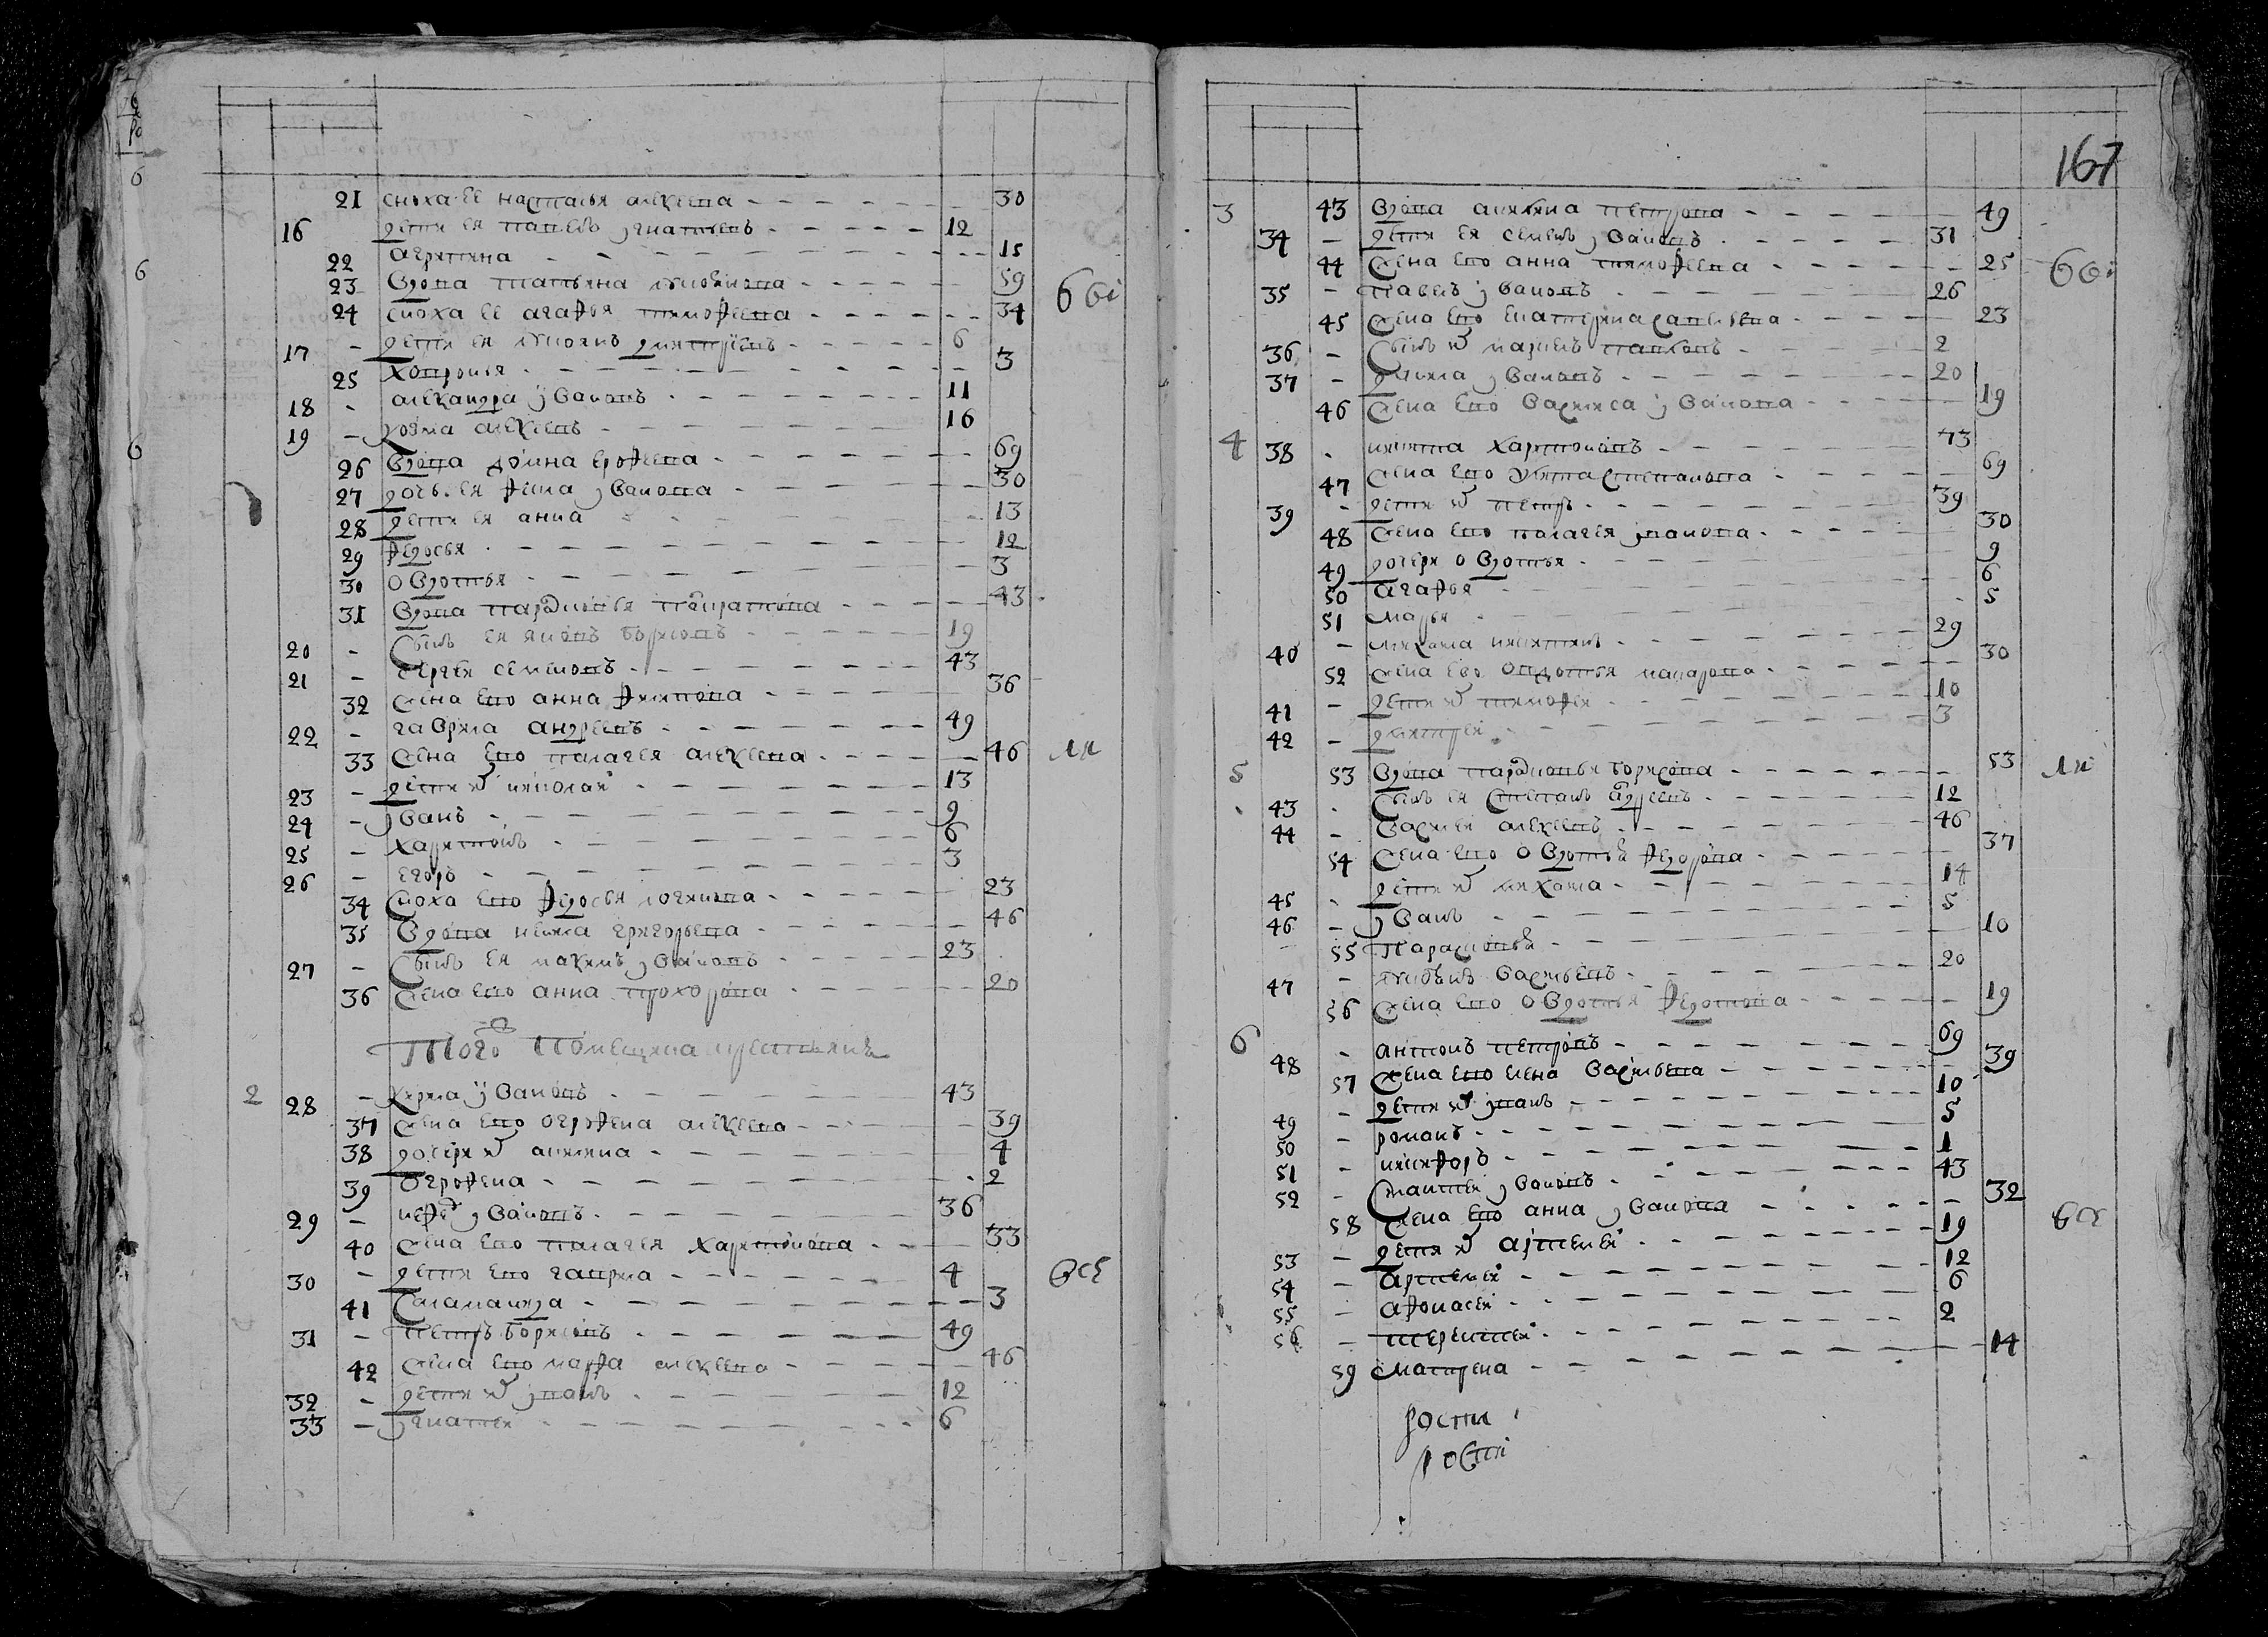 21 сноха ее настасья алексеева 30
16 дети ея павелъ игнатьевъ 12
22 агрипина 15
23 вдова татьяна лукоянова 59
24 сноха ее агафья тимофеева 34
бы
17 - дети ея лукоянъ дмитриевъ 6
25 ховронья 3
18 - александра ивановъ 11
19 - алексеевъ 16
26 вдова домна ерофеева 69
27 дочь ея фекла иванова 30
28 дети ея анна 13
29 федосья 12
30 овдотья 3
31 вдова парасковья панкратова 43
20 - сынъ ея яковъ борисовъ 19
21 - сергеи семеновъ 43
32 жена ево анна филипова 36
22 - гаврила андреевъ 49
33 жена ево пелагея алексеева 46
ли
23 - дети их николай 13
24 - иванъ 9
25 - харитонъ 6
26 - егоръ 3
34 сноха ево федосья логинова 23
35 вдова ненила григорьева 46
27 - сынъ ея максимъ ивановъ 23
36 жена ево анна прохорова 20
Того помещика крестьяне
2 28 - кирила ивановъ 43
37 жена ево огрофена алексеева 39
38 дочери их акилина 4
39 огрофена 2
29 - нефед ивановъ 36
40 жена ево пелагея харитонова 33
30 - дети ево гаврила 4
все
41 саламанида 3
31 - петръ борисовъ 49
42 жена ево марфа алексеева 46
32 - дети их иванъ 12
33 - игнатеи 6
167
3 43 вдова акилина петрова 49
34 - дети ея семенъ ивановъ 31
44 жена ево анна тимофеева 25
бы
35 - павелъ ивановъ 26
45 жена ево екатерина савельева 23
36 - сынъ их маркелъ павловъ 2
37 - данила ивановъ 20
46 жена ево василиса иванова 19
4 38 - никита харитоновъ 73
47 жена ево улита степанова 69
39 - дети их петръ 39
48 жена ево пелагея иванова 30
49 дочери овдотья 9
50 агафья 6
51 марья 5
40 - михаила никитинъ 29
52 жена ево овдотья макарова 30
41 - дети их тимофеи 10
42 - дмитреи 3
5 53 вдова парасковья борисова 53
ли
43 - сынъ ея степанъ андреевъ 12
44 - василеи алексеевъ 46
54 жена ево овдотья федорова 37
45 - дети их михаила 14
46 - иванъ 5
55 парасковья 10
47 - лукьянъ васильевъ 20
56 жена ево овдотья федотова 19
6 48 - антонъ петровъ 69
57 жена ево елена васильева 39
49 - дети их иванъ 10
50 - романъ 5
51 - никифоръ 1
52 - матвеи ивановъ 43
58 жена ево анна иванова 32
все
53 - дети их артемеи 19
54 - артемеи 12
55 - афонасеи 6
56 - терентеи 2
59 матрена 14
рости
рости